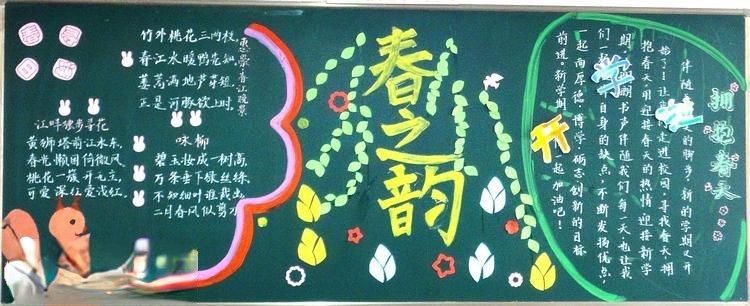 惠崇春江晚景
竹外桃花三两枝,
春江水暖鸭先知,
蒌蒿满地芦芽短,
正是河豚欲上时.
江畔独步寻花
黄狮塔前江水东,
春光懒困倚微风,
桃花一簇开无主,
可爱深红爱浅红.
咏柳
碧玉妆成一树高,
万条垂下绿丝绦,
不知细叶谁裁出,
二月春风似剪刀.
春之韵
拥抱春天
伴随 的脚步,新的学期又开
始了!让 走进校园,寻找春天,拥
抱春天,用迎接春天的热情迎接新学
期。 朗书声伴随我们每一天,也让我
们一 自身的缺点,不断发扬优点,
起向厚德、博学、砺志、创新的目标
前进。新学期, 起加油吧!